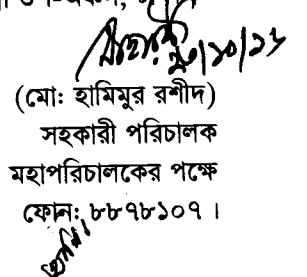 ২০/১০/১৬
(মোঃ হামিমুর রশীদ)
সহকারী পরিচালক
মহাপরিচালকের পক্ষে
ফোন: ৮৮৭৮১০৭ ।